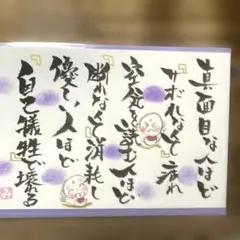 真面目な人ほど
『サボれなくて』疲れ
空気を読む人ほど
『断れなくて』消耗し
優しい人ほど
『自己犠牲で』壊れる